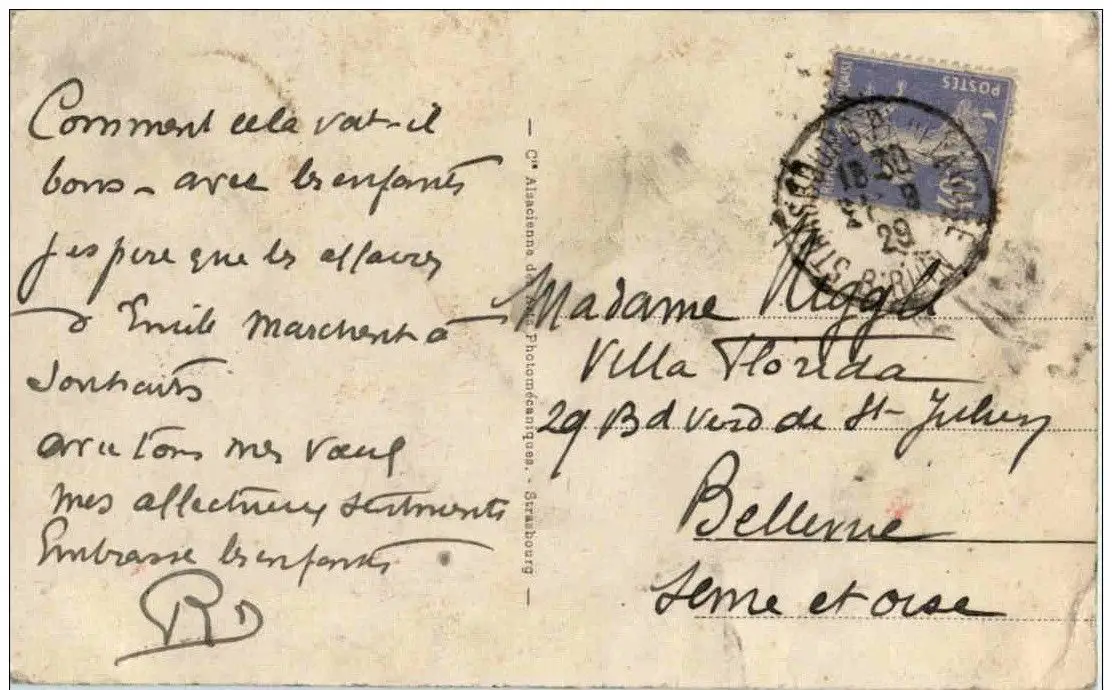 Comment cela vat-il
bons - avec les enfants
j'espere que les affaires
d'Emile marchent à
souhaits
avec tous mes vœux
mes affectueux sentiments
Embrasse les enfants
R
— Cie Alsacienne de Photomécaniques. - Strasbourg —
POSTES
STRASBOURG
BAS RHIN
Madame Niggli
Villa Florida
29 Bd Verd de St-Julien
Bellevue
Seine et oise